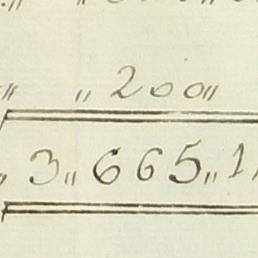 „ „ 200 „
„ 3 „ 665 „ 1